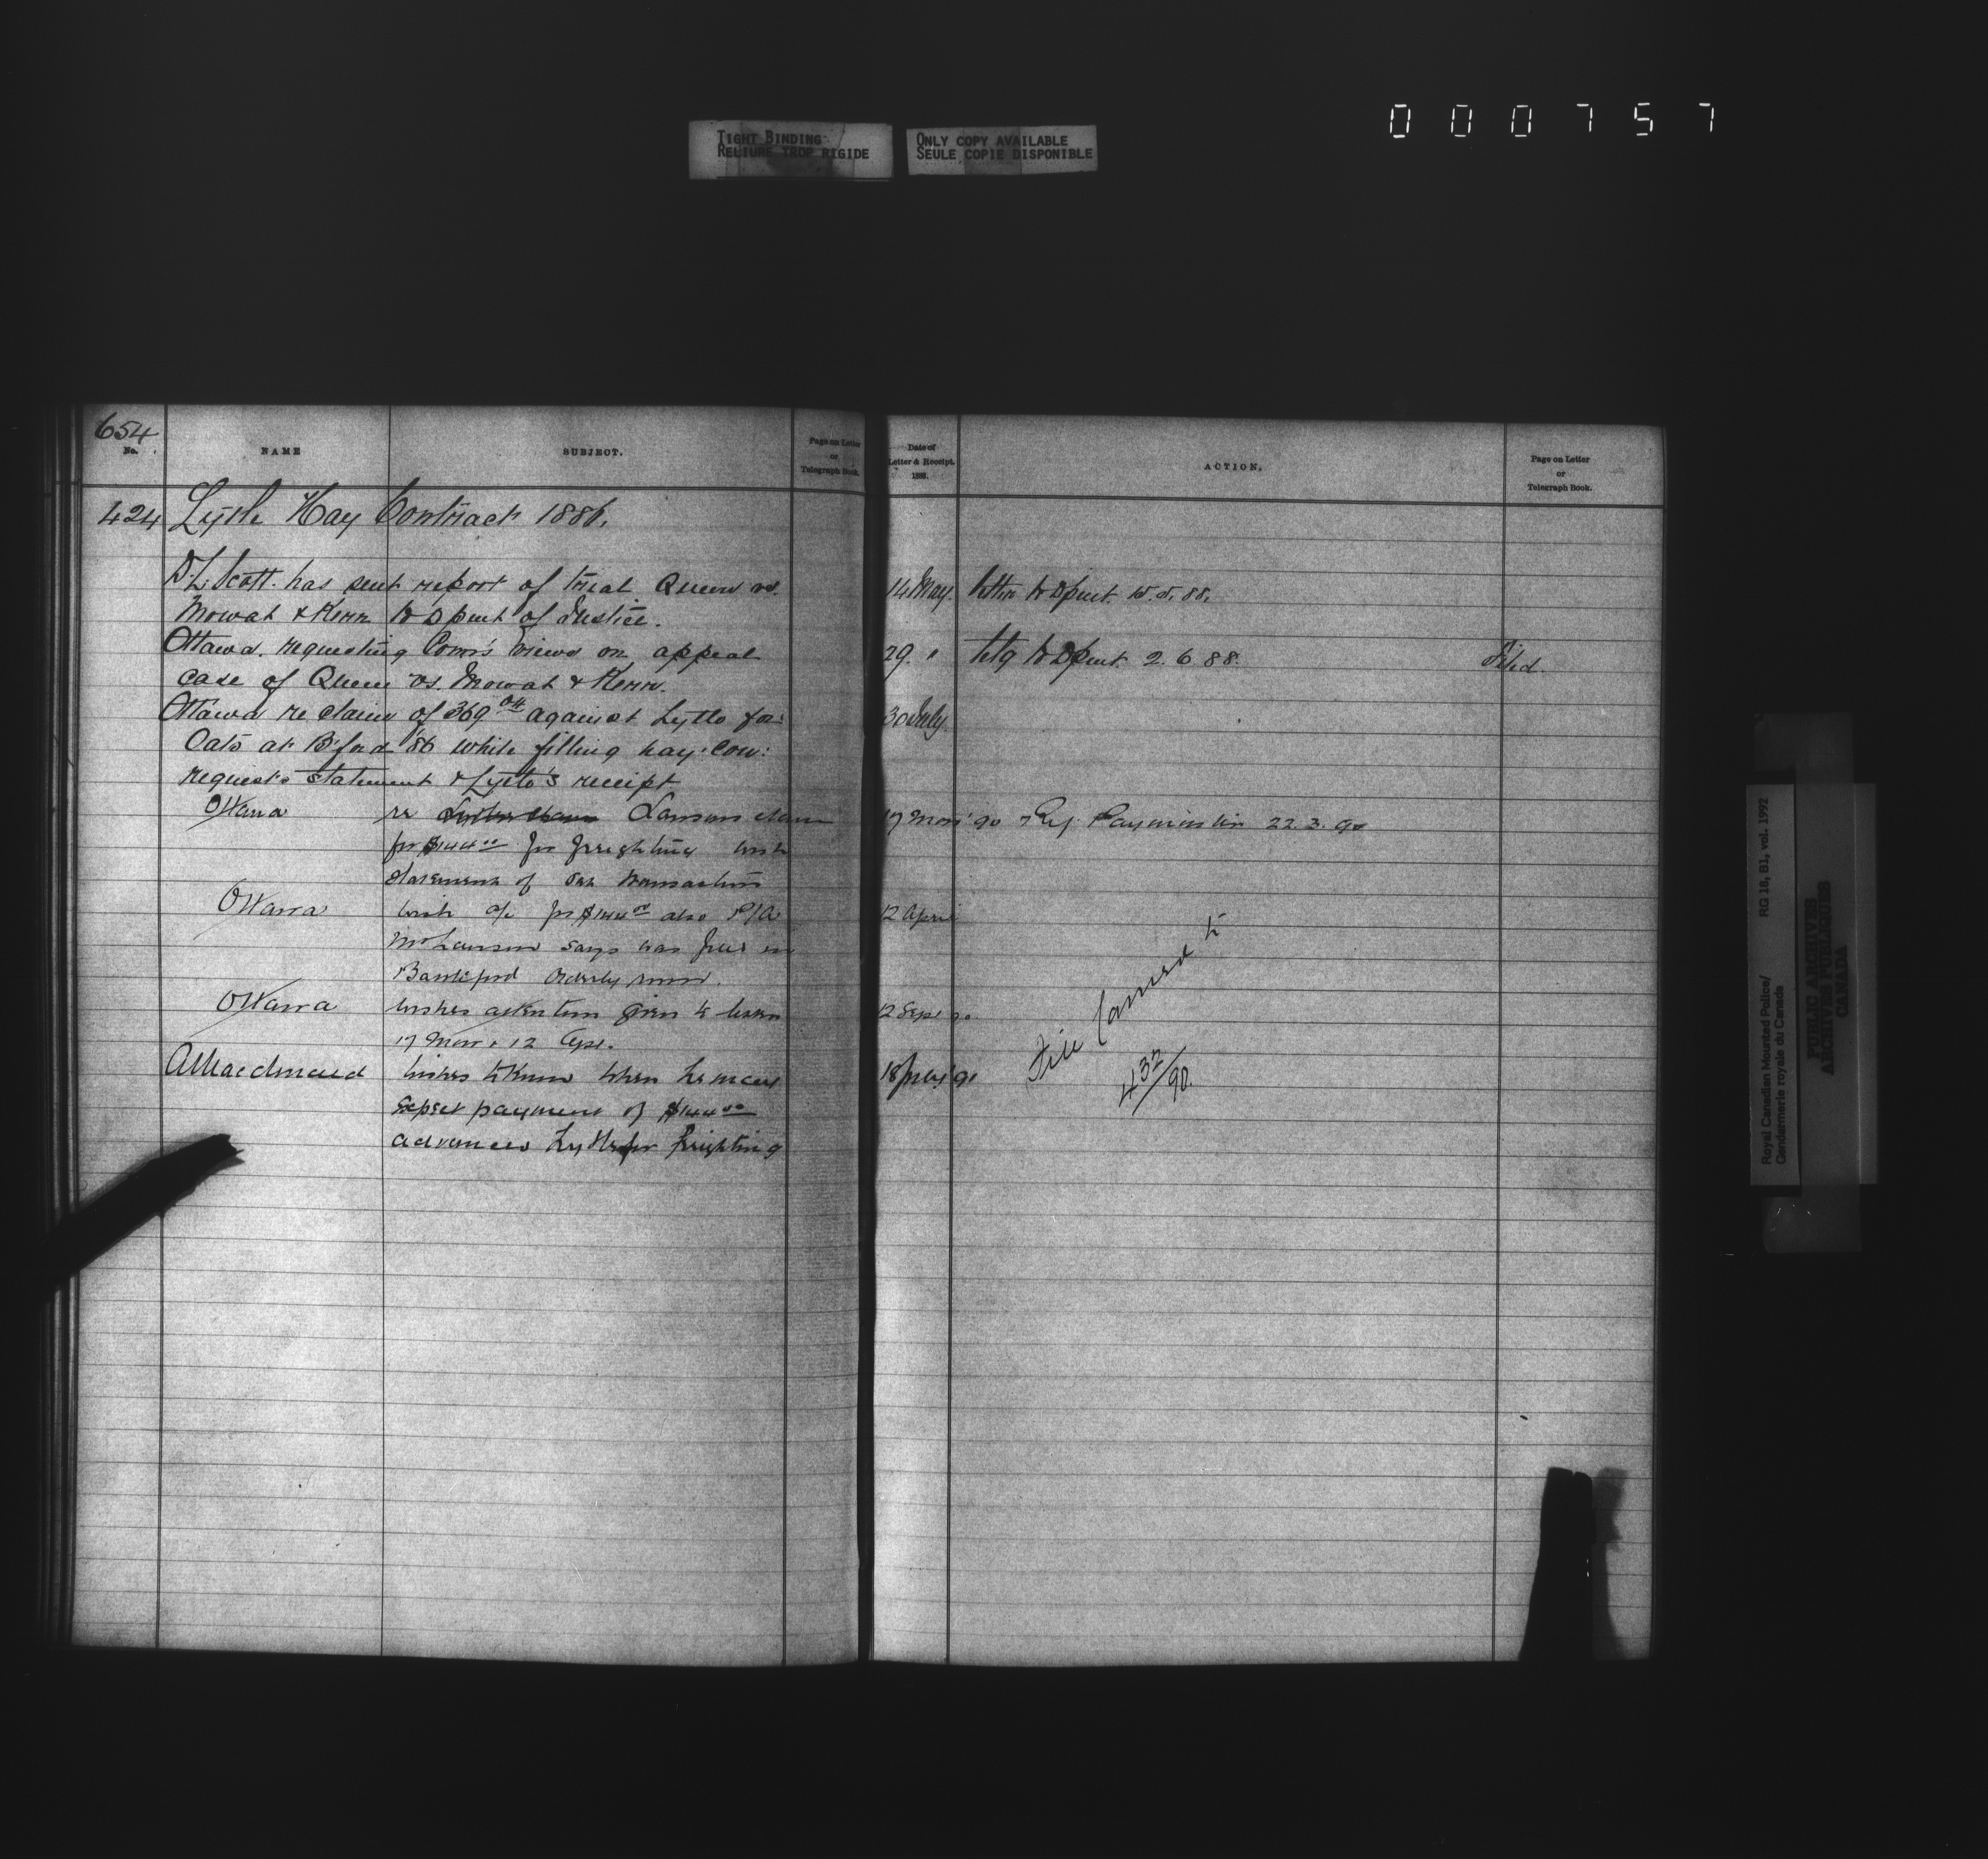 000757
TIGHT BINDING
RELIURE TROP RIGIDE
ONLY COPY AVAILABLE
SEULE COPIE DISPONIBLE
654
No.
NAME
SUBJECT.
Page on Letter
or
Telegraph Book.
Date of
Letter & Receipt.
188
ACTION.
Page on Letter
or
Telegraph Book.
424 Lytle Hay Contract 1886.
D. L. Scott. has sent report of trial Queen vs. 14 May. letter to Dpmt.
Mowat & Kerr to Dpmt of Justice.
Ottawa. requesting Comr's views on appeal 29. " Dpmt. 2.6.88. Filed.
case of Queen vs. Mowat & Kerr.
Ottawa re claim of 369 04 against Lytle for 30 July.
Oats at B'ford '86 while filling hay. Con:
requests statement & Lytle's receipt
Ottawa re Lawson claim 17 Mar '90 Ref. 22.3.90
for $144 00 for freighting wish
statement of transaction
Ottawa wish a/c for $144 00 also P/A 12 April
Mr Lawson says was in
Battleford Orderly room.
Ottawa wishes attention given to letters 12 Sept 90
17 Mar & 12 Apl.
wishes to know when he may 18 91
expect payment of $144 00
advanced Lytle for freighting
File Carried to
432/90.
Royal Canadian Mounted Police/
Gendarmerie royale du Canada
RG 18, B1, vol. 1992
PUBLIC ARCHIVES
ARCHIVES PUBLIQUES
CANADA